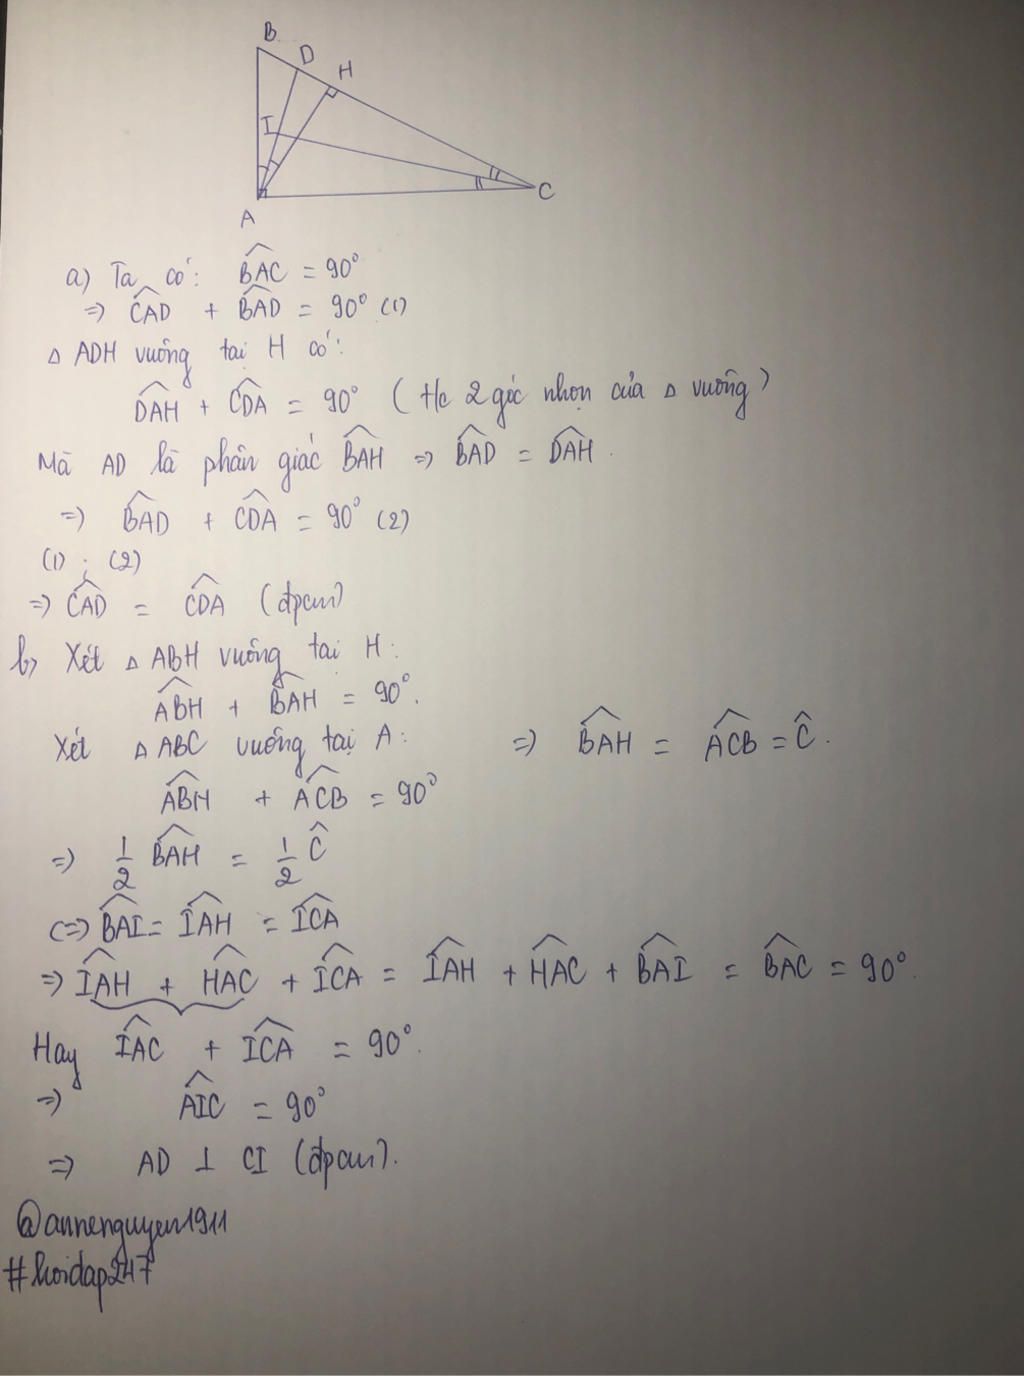 B
D
H
I
A
C
a) Ta có: $\widehat{BAC}$ = 90°
=> $\widehat{CAD}$ + $\widehat{BAD}$ = 90° (1)
Δ ADH vuông tại H có:
$\widehat{DAH}$ + $\widehat{CDA}$ = 90° (t/c 2 góc nhọn của Δ vuông)
Mà AD là phân giác $\widehat{BAH}$ => $\widehat{BAD}$ = $\widehat{DAH}$.
=> $\widehat{BAD}$ + $\widehat{CDA}$ = 90° (2)
(1) ; (2)
=> $\widehat{CAD}$ = $\widehat{CDA}$ (đpcm)
b, Xét Δ ABH vuông tại H:
$\widehat{ABH}$ + $\widehat{BAH}$ = 90°.
Xét Δ ABC vuông tại A: => $\widehat{BAH}$ = $\widehat{ACB}$ = $\widehat{C}$.
$\widehat{ABH}$ + $\widehat{ACB}$ = 90°
=> $\frac{1}{2}$ $\widehat{BAH}$ = $\frac{1}{2}$ $\widehat{C}$
<=> $\widehat{BAI}$ = $\widehat{IAH}$ = $\widehat{ICA}$
=> $\widehat{IAH}$ + $\widehat{HAC}$ + $\widehat{ICA}$ = $\widehat{IAH}$ + $\widehat{HAC}$ + $\widehat{BAI}$ = $\widehat{BAC}$ = 90°.
Hay $\widehat{IAC}$ + $\widehat{ICA}$ = 90°.
=> $\widehat{AIC}$ = 90°
=> AD ⊥ CI (đpcm).
@annenguyen1911
#hoidap247